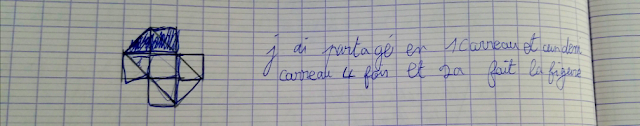 j ai partagé en 1 carreau et un demi
carreau 4 fois et sa fait la figure